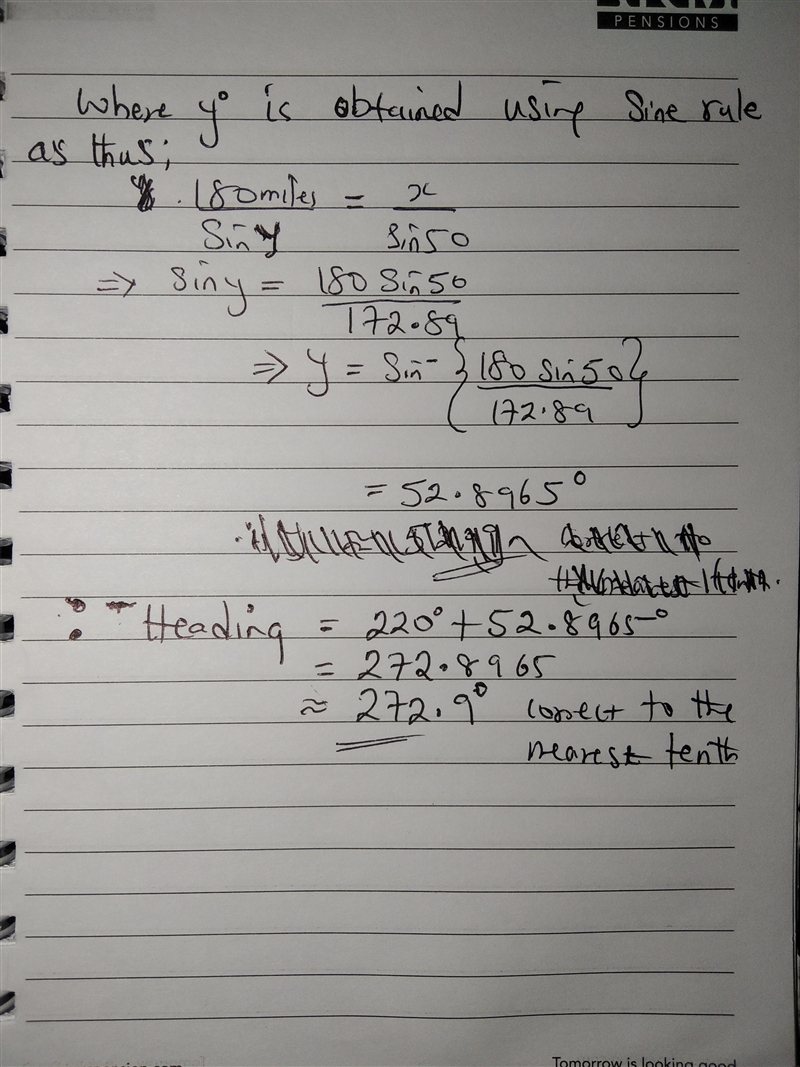 PENSIONS
Where y° is obtained using Sine rule
as thus;
180miles = x
Sin y sin50
⇒ Sin y = 180 Sin 50
172.89
⇒ y = Sin⁻ { 180 sin 50 }
172.89
= 52.8965°
∴ Heading = 220° + 52.8965°
= 272.8965
≈ 272.9° correct to the
nearest tenth
Tomorrow is looking good